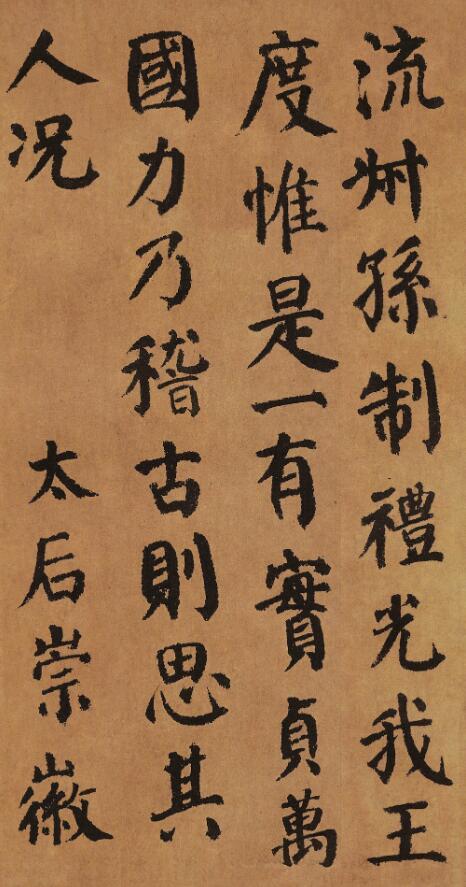 流叔孫制禮光我王
度惟是一有實貞萬
國力乃稽古則思其
人况　太后崇徽